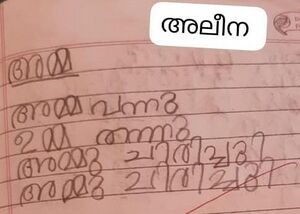 അലീന
അമ്മ
അമ്മ വന്നു
ഉമ്മ തന്നു
അമ്മു ചിരിച്ചു
അമ്മു ചിരിച്ചു